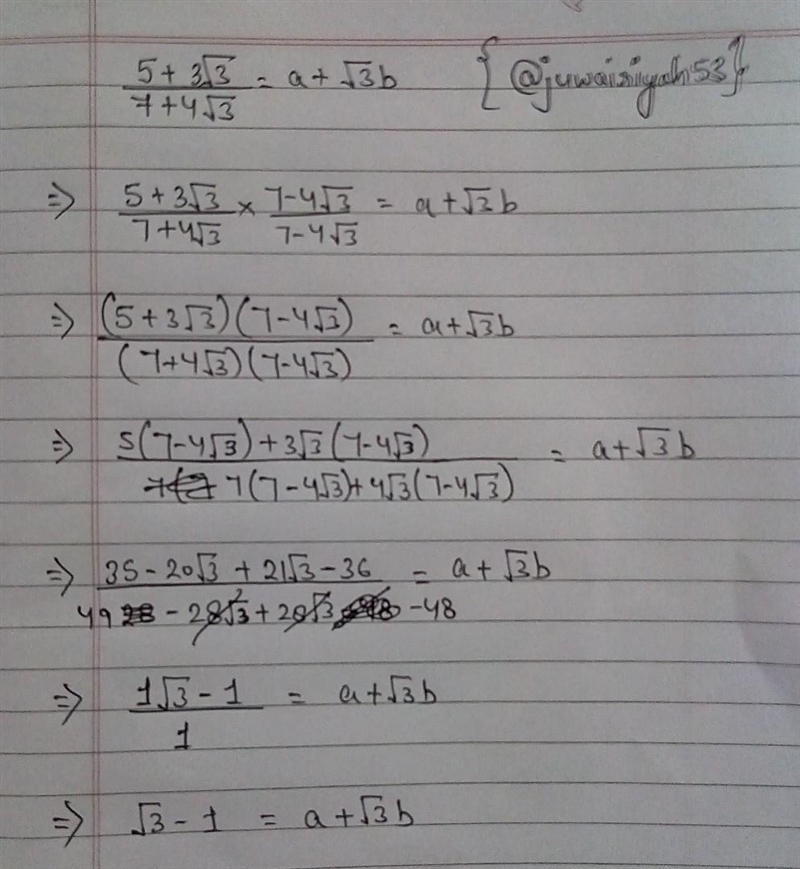 (5 + 3√3)/(7 + 4√3) = a + √3b {@juwairiyah53}
⇒ (5 + 3√3)/(7 + 4√3) × (7 - 4√3)/(7 - 4√3) = a + √3b
⇒ (5 + 3√3)(7 - 4√3)/(7 + 4√3)(7 - 4√3) = a + √3b
⇒ 5(7 - 4√3) + 3√3(7 - 4√3) / 7(7 - 4√3) + 4√3(7 - 4√3) = a + √3b
⇒ 35 - 20√3 + 21√3 - 36 / 49 - 28√3 + 28√3 - 48 = a + √3b
⇒ (1√3 - 1)/1 = a + √3b
⇒ √3 - 1 = a + √3b